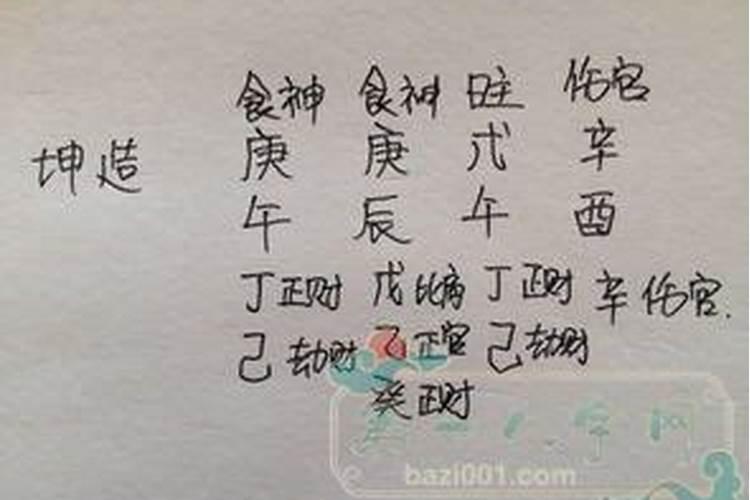 食神 食神 日主 伤官
坤造 庚 庚 戊 辛
午 辰 午 酉
丁正财 戊比肩 丁正财 辛伤官.
己劫财 乙正官 己劫财
癸正财
bazi001.com